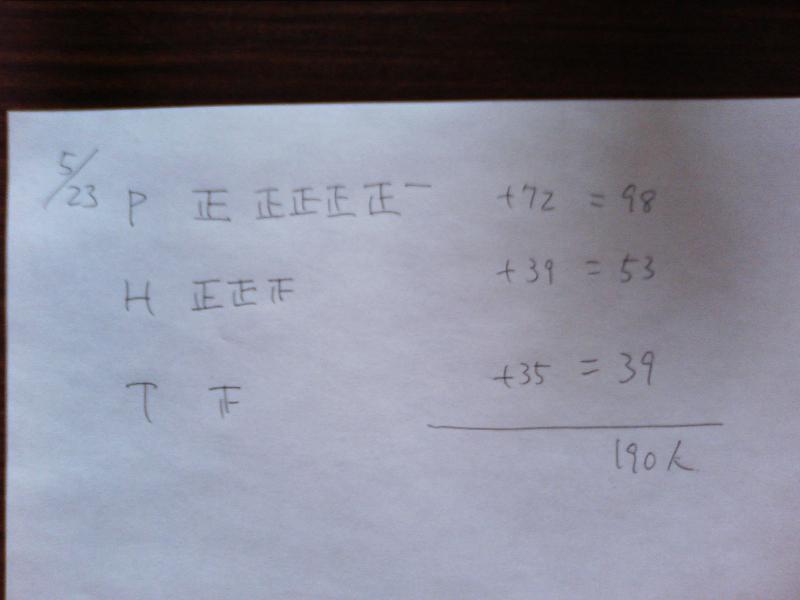 5/23 P 正 正正正正一 +72 = 98
H 正正下 +39 = 53
T 下 +35 = 39
190人